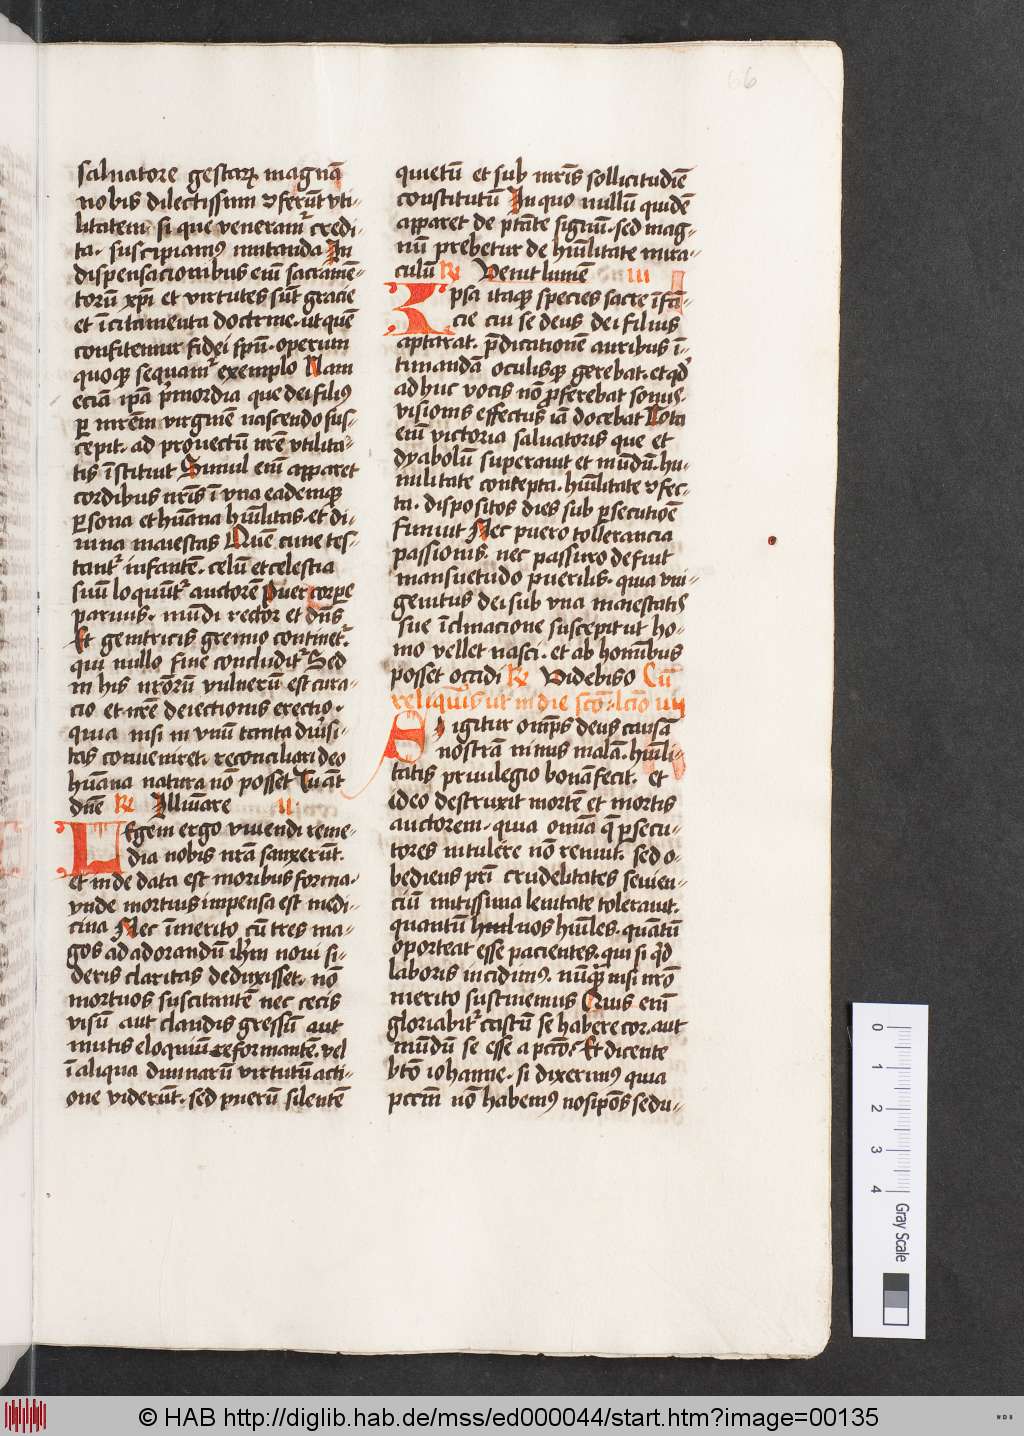 66
saluatore gestarꝝ magnā
nobis dilectissimi ꝯferūt vti-
litatem· si que veneramᷣ credi-
ta· suscipiamꝰ imitanda In
dispensacionibus eī sacramē-
torū xpī et virtutes sūt gracie
et īcitamenta doctrine· ut quē
confitemur fidei spū· operum
quoqꝫ sequamᷣ exemplo Nam
eciā ipā pmordia que dei filiꝰ
ꝑ mrēm virginē nascendo sus-
cepit· ad prouectū nrē vtilita-
tis īstituit Simul eī apparet
cordibus nrīs ī vna eademqꝫ
ꝑsona et hūana hūilitas· et di-
uina maiestas Quē cune tes-
tantᷣ infantē· celū et celestia
suū loquūtᷣ auctorē Puer corpe
paruus· mūdi rector et dn̄s
Et genitricis gremio continetᷣ
qui nullo fine concluditᷣ Sed
in his nrōrū vulnerū est cura-
cio et nrē deiectionis erectio·
quia nisi in vnū tanta diūsi-
tas conueniret· reconciliari deo
hūana natura nō posset Tu aūt
dnē R Illūare II·
Legem ergo viuendi reme-
dia nobis nrā sanxerūt·
et inde data est moribus forma·
vnde mortuis impensa est medi-
cina Nec īmerito cū tres ma-
gos ad adorandū ihm noui si-
deris claritas deduxisset· nō
mortuos suscitantē nec cecis
visū aut claudis gressū aut
mutis eloquiū reformantē· vel
ī aliqua diuinarū virtutū acti-
one viderūt· sed puerū silentē
quietū et sub mrīs sollicitudīe
constitutū In quo nullū quidē
apparet de ptāte signū· sed mag-
nū prebetur de hūilitate mira-
culū R Venit lumē III
Ipsa itaqꝫ species sacre īfā-
cie cui se deus dei filius
aptarat· p̄dicationē auribus ī-
timandā oculisqꝫ gerebat· et qd̄
adhuc vocis nō ꝓferebat sonus·
visionis effectus iā docebat Tota
eī victoria saluatoris que et
dyabolū superauit et mūdū· hu-
militate concepta· hūilitate ꝯfec-
ta· dispositos dies sub ꝑsecutiōe
finiuit Nec puero tollerancia
passionis· nec passuro defuit
mansuetudo puerilis· quia vni-
genitus dei sub vna maiestatis
sue īclinacione suscepit ut ho-
mo vellet nasci· et ab hominibus
posset occidi R Videbiso Cū
reliquis ut in die scō· lcīo IIII
Si igitur omps deus causā
nostrā nimis malā· hūili-
tatis priuilegio bonā fecit· et
ideo destruxit mortē et mortis
auctorem· quia omīa q̄ ꝑsecu-
tores intulere nō renuit· sed o-
bediens prī crudelitates seuien-
ciū mitissima lenitate tolerauit·
quantū nos hūiles· quātū
oporteat esse pacientes· qui si qd̄
laboris incidimꝰ· nūqꝫ nisi nrō
merito sustinemus Quis eī
gloriabitᷣ castū se habere cor· aut
mūdū se esse a pctō· Et dicente
btō iohanne· si dixerimꝰ quia
pctm̄ nō habemꝰ nosipōs sedu-
0 1 2 3 4 Gray Scale
© HAB http://diglib.hab.de/mss/ed000044/start.htm?image=00135